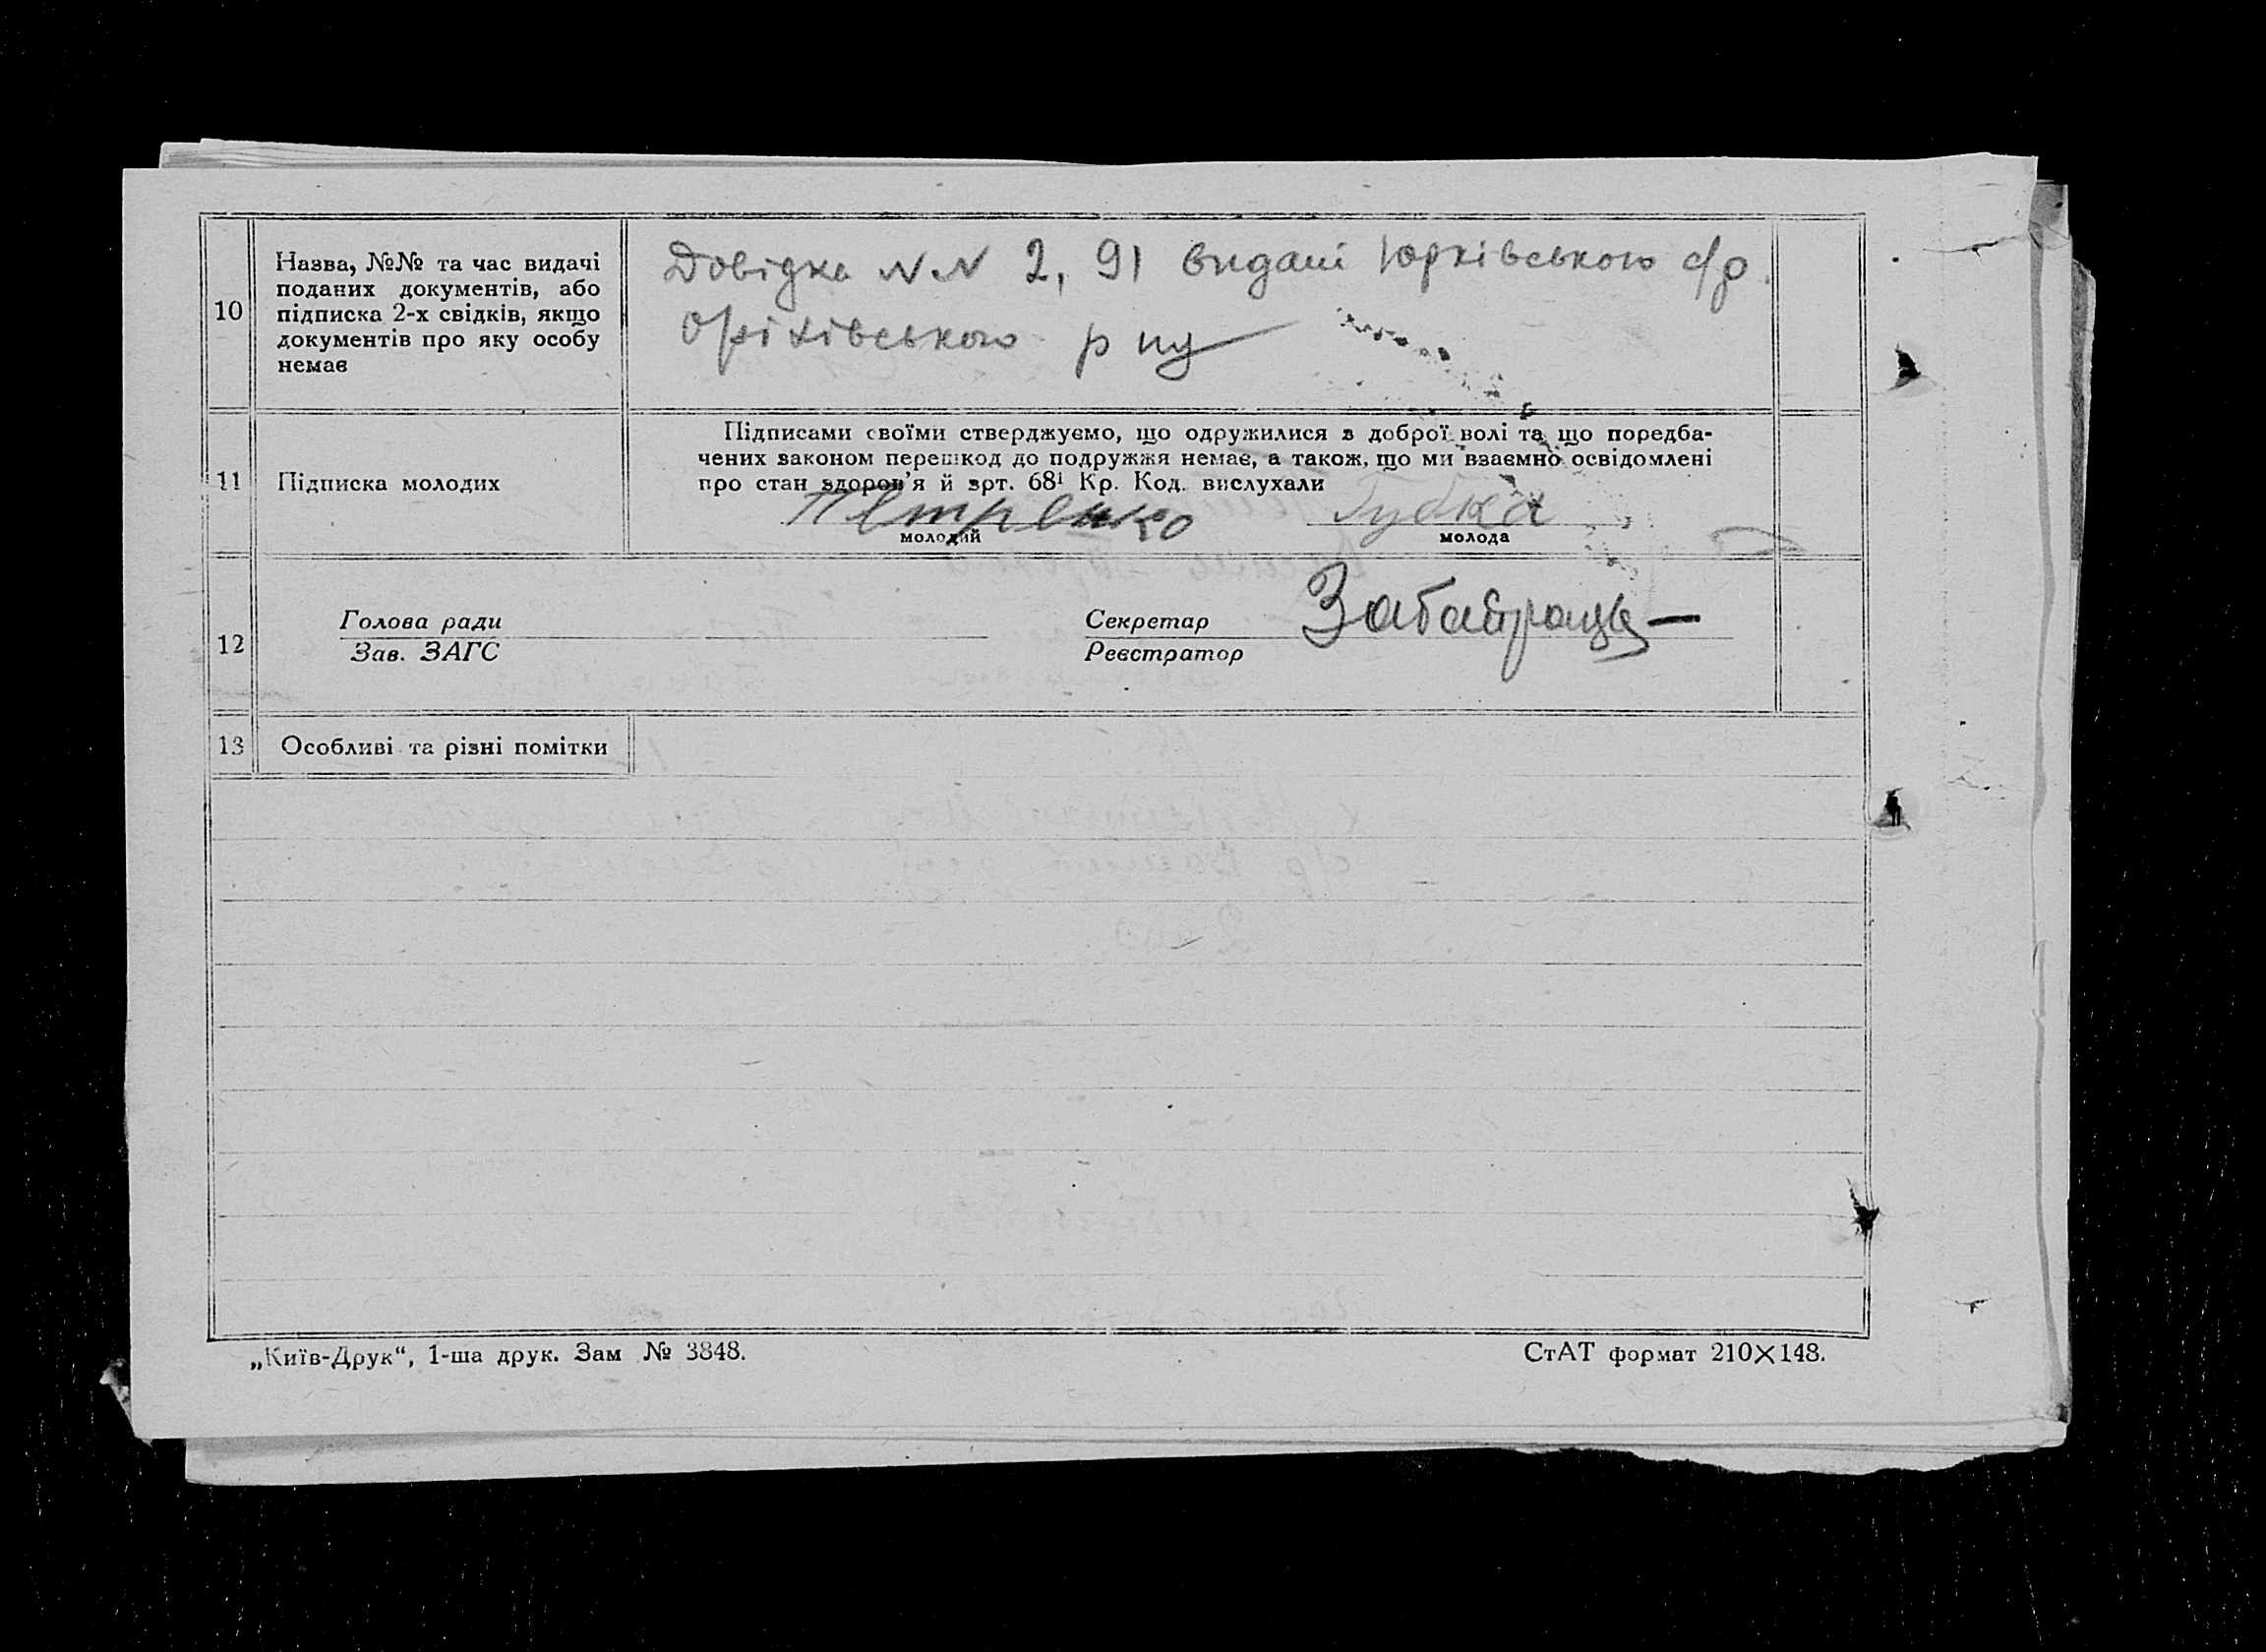 10
Назва, №№ та час видачі
поданих документів, або
підписка 2-х свідків, якщо
документів про яку особу
немає
Довідка N N 2, 91 видані Юрківською с/р
Оріхівського р ну
11
Підписка молодих
Підписами своїми стверджуємо, що одружилися з доброї волі та що поредба-
чених законом перешкод до подружжя немає, а також, що ми взаємно освідомлені
про стан здоров'я й зрт. 68¹ Кр. Код. вислухали
Петренко
Губка
молодий
молода
12
Голова ради
Зав. ЗАГС
Секретар
Реєстратор
13
Особливі та різні помітки
„Київ-Друк“, 1-ша друк. Зам № 3848.
СтАТ формат 210×148.